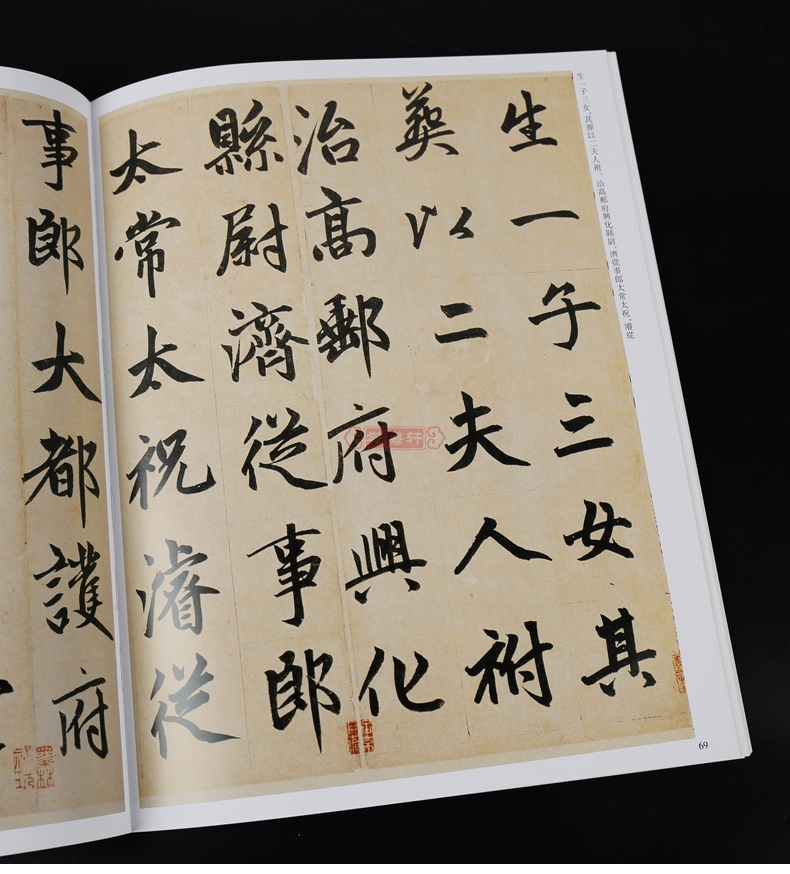 生一子三女其
葬以二夫人祔
治高郵府興化
縣尉濟從事郎
太常太祝濬從
事郎大都護府
生一子三女，其葬以二夫人祔。治高郵府興化縣尉，濟從事郎太常太祝，濬從
69